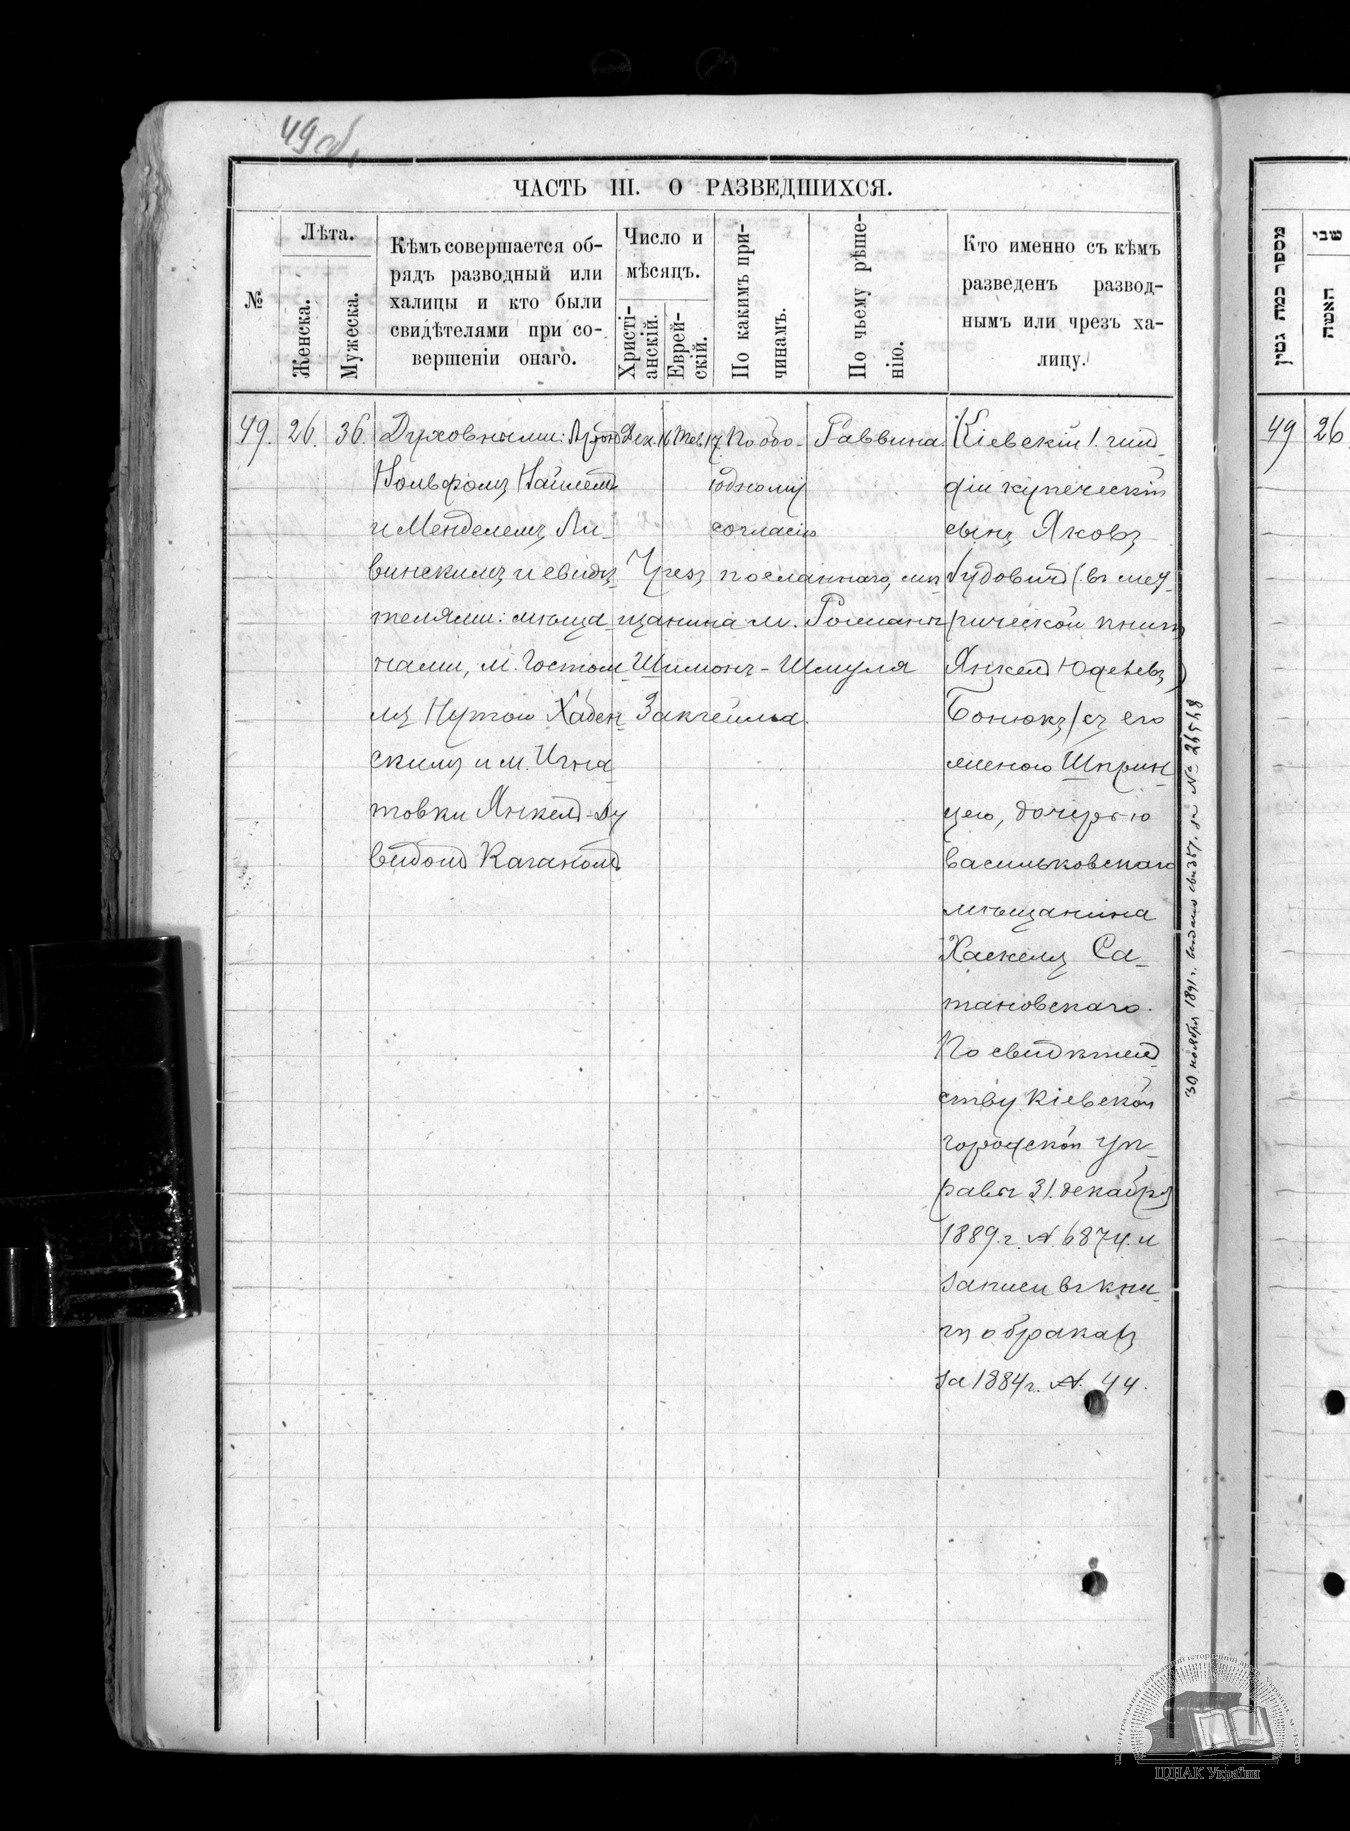 49 об.
ЧАСТЬ III. О РАЗВЕДШИХСЯ.
№
Лѣта.
Женска.
Мужеска.
Кѣмъ совершается об-
рядъ разводный или
халицы и кто были
свидѣтелями при со-
вершеніи онаго.
Число и
мѣсяцъ.
Христі-
анскій.
Еврей-
скій.
По какимъ при-
чинамъ.
По чьему рѣше-
нію.
Кто именно съ кѣмъ
разведенъ развод-
нымъ или чрезъ ха-
лицу.
49. 26. 36.
Духовными:
Вольфомъ
и Менделемъ Ли-
винскимъ и свидѣ-
телями: мѣща-
нами, м. Гостом-
ля Нутою Хабен-
скимъ и м. Игна-
товки Янкель-Ду
видомъ Каганомъ
Дек. 16 Тев. 17
По обо-
юдному
согласію
Раввина
Чрез посланнаго, мѣ-
щанина м. Романи
Шимонъ-Шмуля
Закгейма.
Кіевскій 1. гиль-
діи купеческій
сынъ Яковъ
Іудовичъ (въ мет-
рической книгѣ
Янкель Юделевъ)
Бонюкъ съ его
женою Шприн-
цею, дочерью
васильковскаго
мѣщанина
Хаскеля Са-
тановскаго.
По свидѣтель-
ству Кіевской
городской Уп-
равы 31. декабря
1889. г. №. 6874. и
записи въ кни-
гѣ о бракахъ
за 1884 г. №. 44.
30 ноября 1891 г. выдано свид. за № 26568
מספר כמה גטין
שני
האשה
49 26
ЦДІАК України